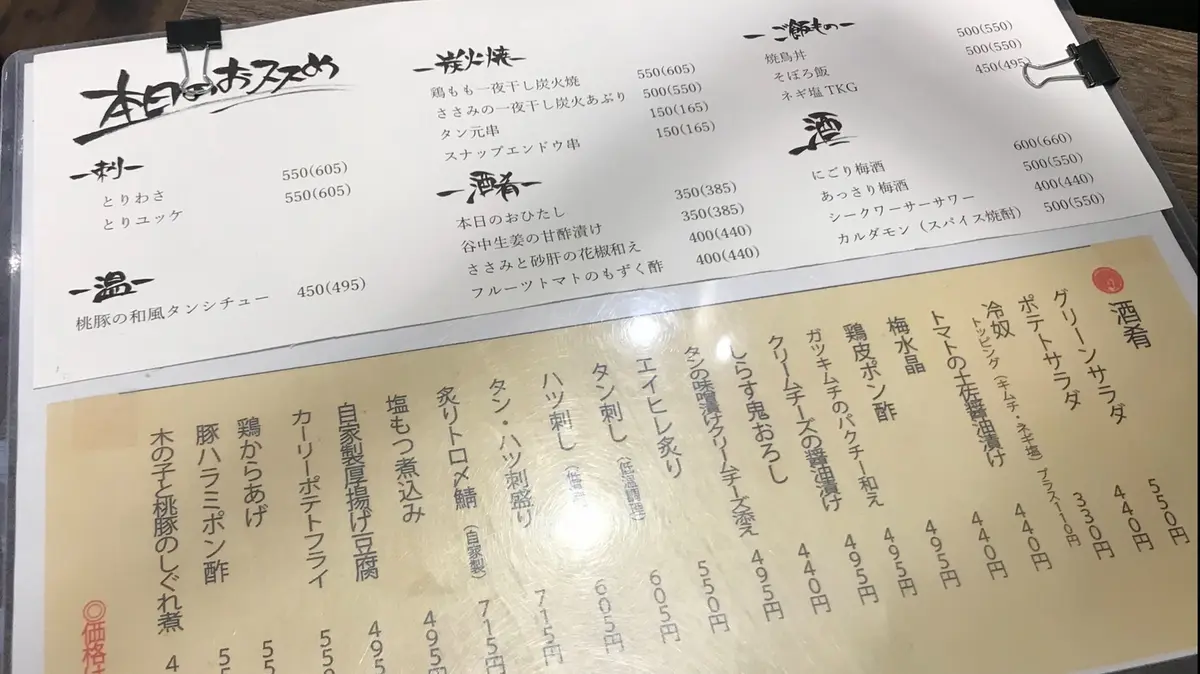 本日のおススメ
-刺-
とりわさ 550(605)
とりユッケ 550(605)
-温-
桃豚の和風タンシチュー 450(495)
-炭火焼-
鶏もも一夜干し炭火焼 550(605)
ささみの一夜干し炭火あぶり 500(550)
タン元串 150(165)
スナップエンドウ串 150(165)
-酒肴-
本日のおひたし 350(385)
谷中生姜の甘酢漬け 350(385)
ささみと砂肝の花椒和え 400(440)
フルーツトマトのもずく酢 400(440)
-ご飯もの-
焼鳥丼 500(550)
そぼろ飯 500(550)
ネギ塩TKG 450(495)
酒
にごり梅酒 600(660)
あっさり梅酒 500(550)
シークワーサーサワー 400(440)
カルダモン（スパイス焼酎） 500(550)
酒肴
グリーンサラダ 550円
ポテトサラダ 440円
冷奴 330円
トッピング（キムチ・ネギ塩）プラス110円
トマトの土佐醤油漬け 440円
梅水晶 440円
鶏皮ポン酢 495円
ガツキムチのパクチー和え 495円
クリームチーズの醤油漬け 495円
しらす鬼おろし 440円
タンの味噌漬けクリームチーズ添え 495円
エイヒレ炙り 550円
タン刺し（低温調理） 605円
ハツ刺し（低温 605円
タン・ハツ刺盛り 715円
炙りトロ〆鯖（自家製） 715円
塩もつ煮込み 495
自家製厚揚げ豆腐 495
カーリーポテトフライ 550
鶏からあげ 55
豚ハラミポン酢 55
木の子と桃豚のしぐれ煮 4
◎価格は